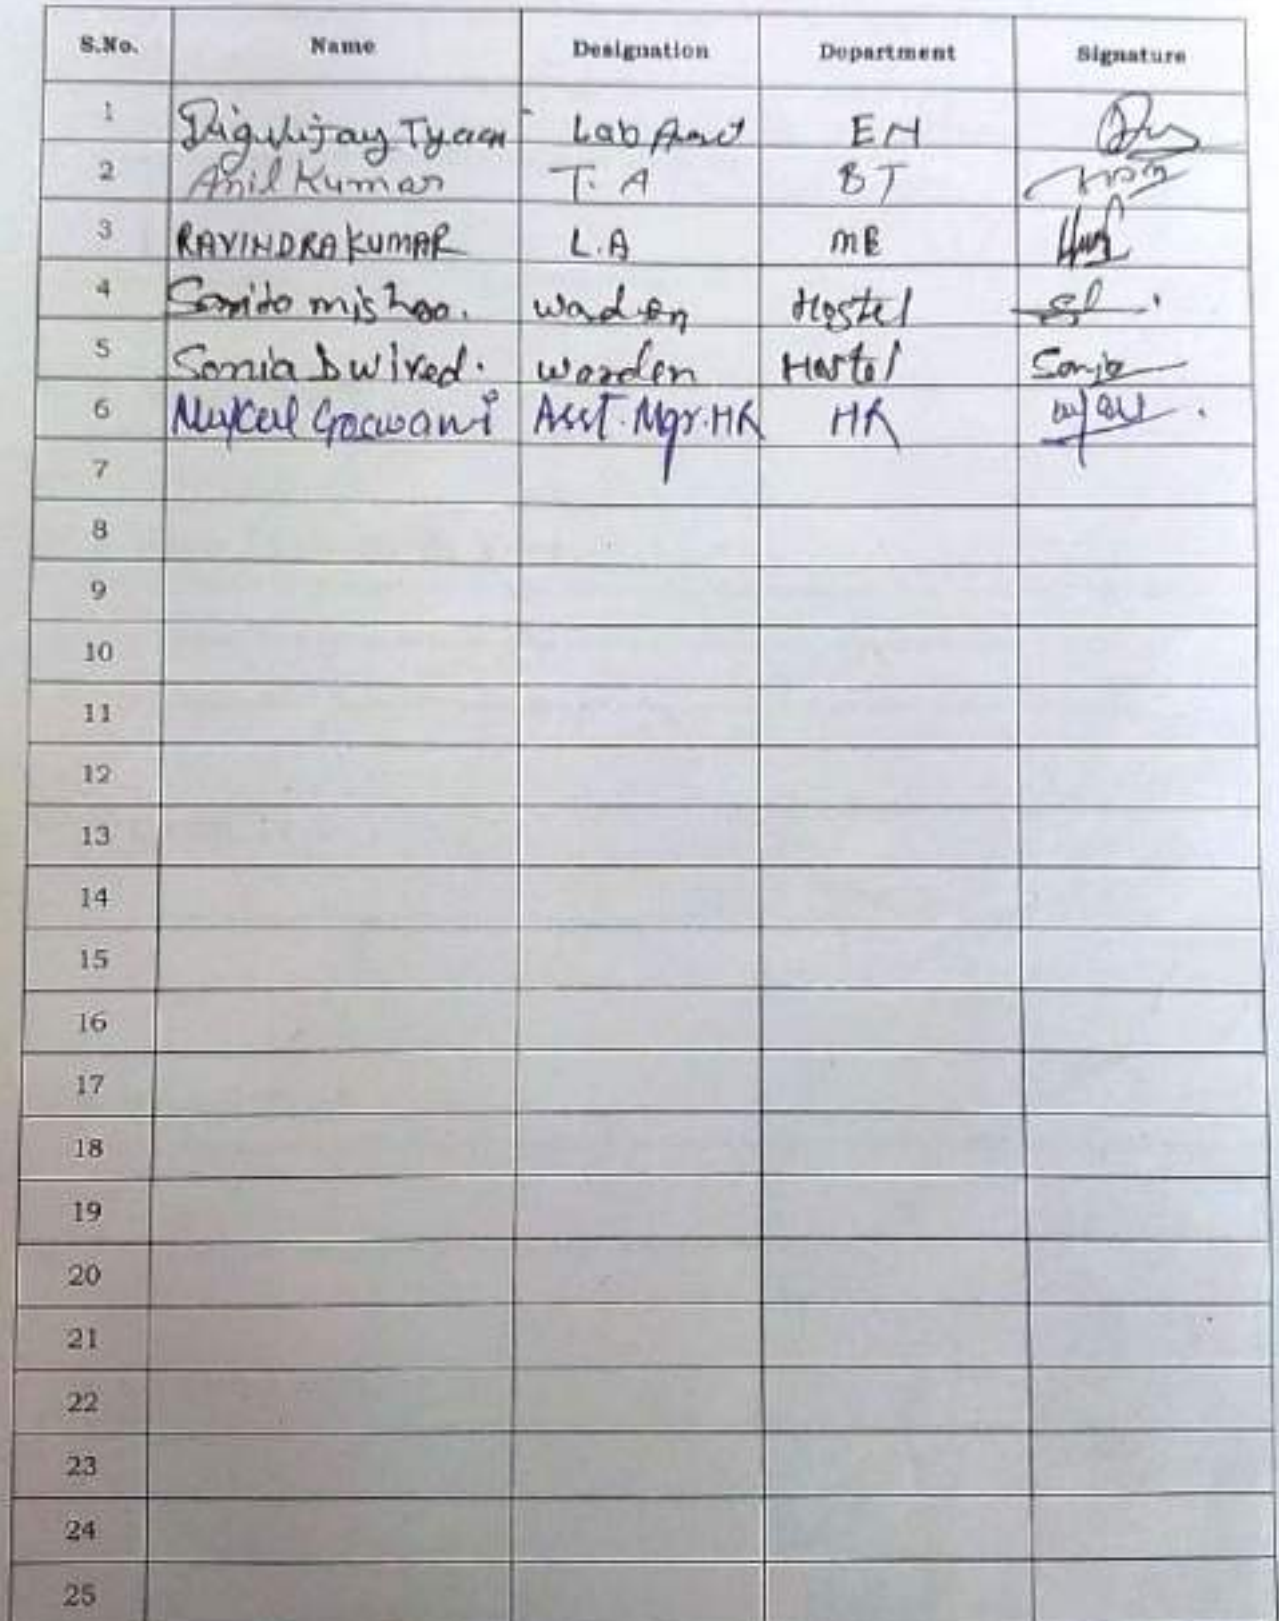 S.No. Name Designation Department Signature
1 Digvijay Tyagi Lab Asst EN
2 Anil Kumar T. A BT
3 RAVINDRA KUMAR L.A ME
4 waden Hostel
5 Sonia Dwived. warden Hostel Sonia
6 Asst. Mgr. HR HR
7
8
9
10
11
12
13
14
15
16
17
18
19
20
21
22
23
24
25